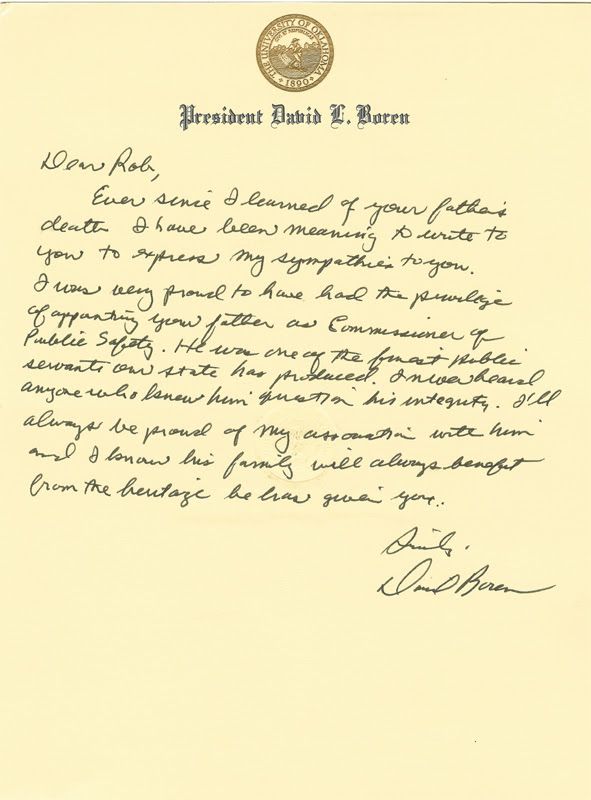 THE UNIVERSITY OF OKLAHOMA
CIVI ET REIPUBLICAE
1890
President David L. Boren
Dear Rob,
Ever since I learned of your father's
death I have been meaning to write to
you to express my sympathies to you.
I was very proud to have had the privilege
of appointing your father as Commissioner of
Public Safety. He was one of the finest public
servants our state has produced. I never heard
anyone who knew him question his integrity. I'll
always be proud of my association with him
and I know his family will always benefit
from the heritage he has given you.
David Boren